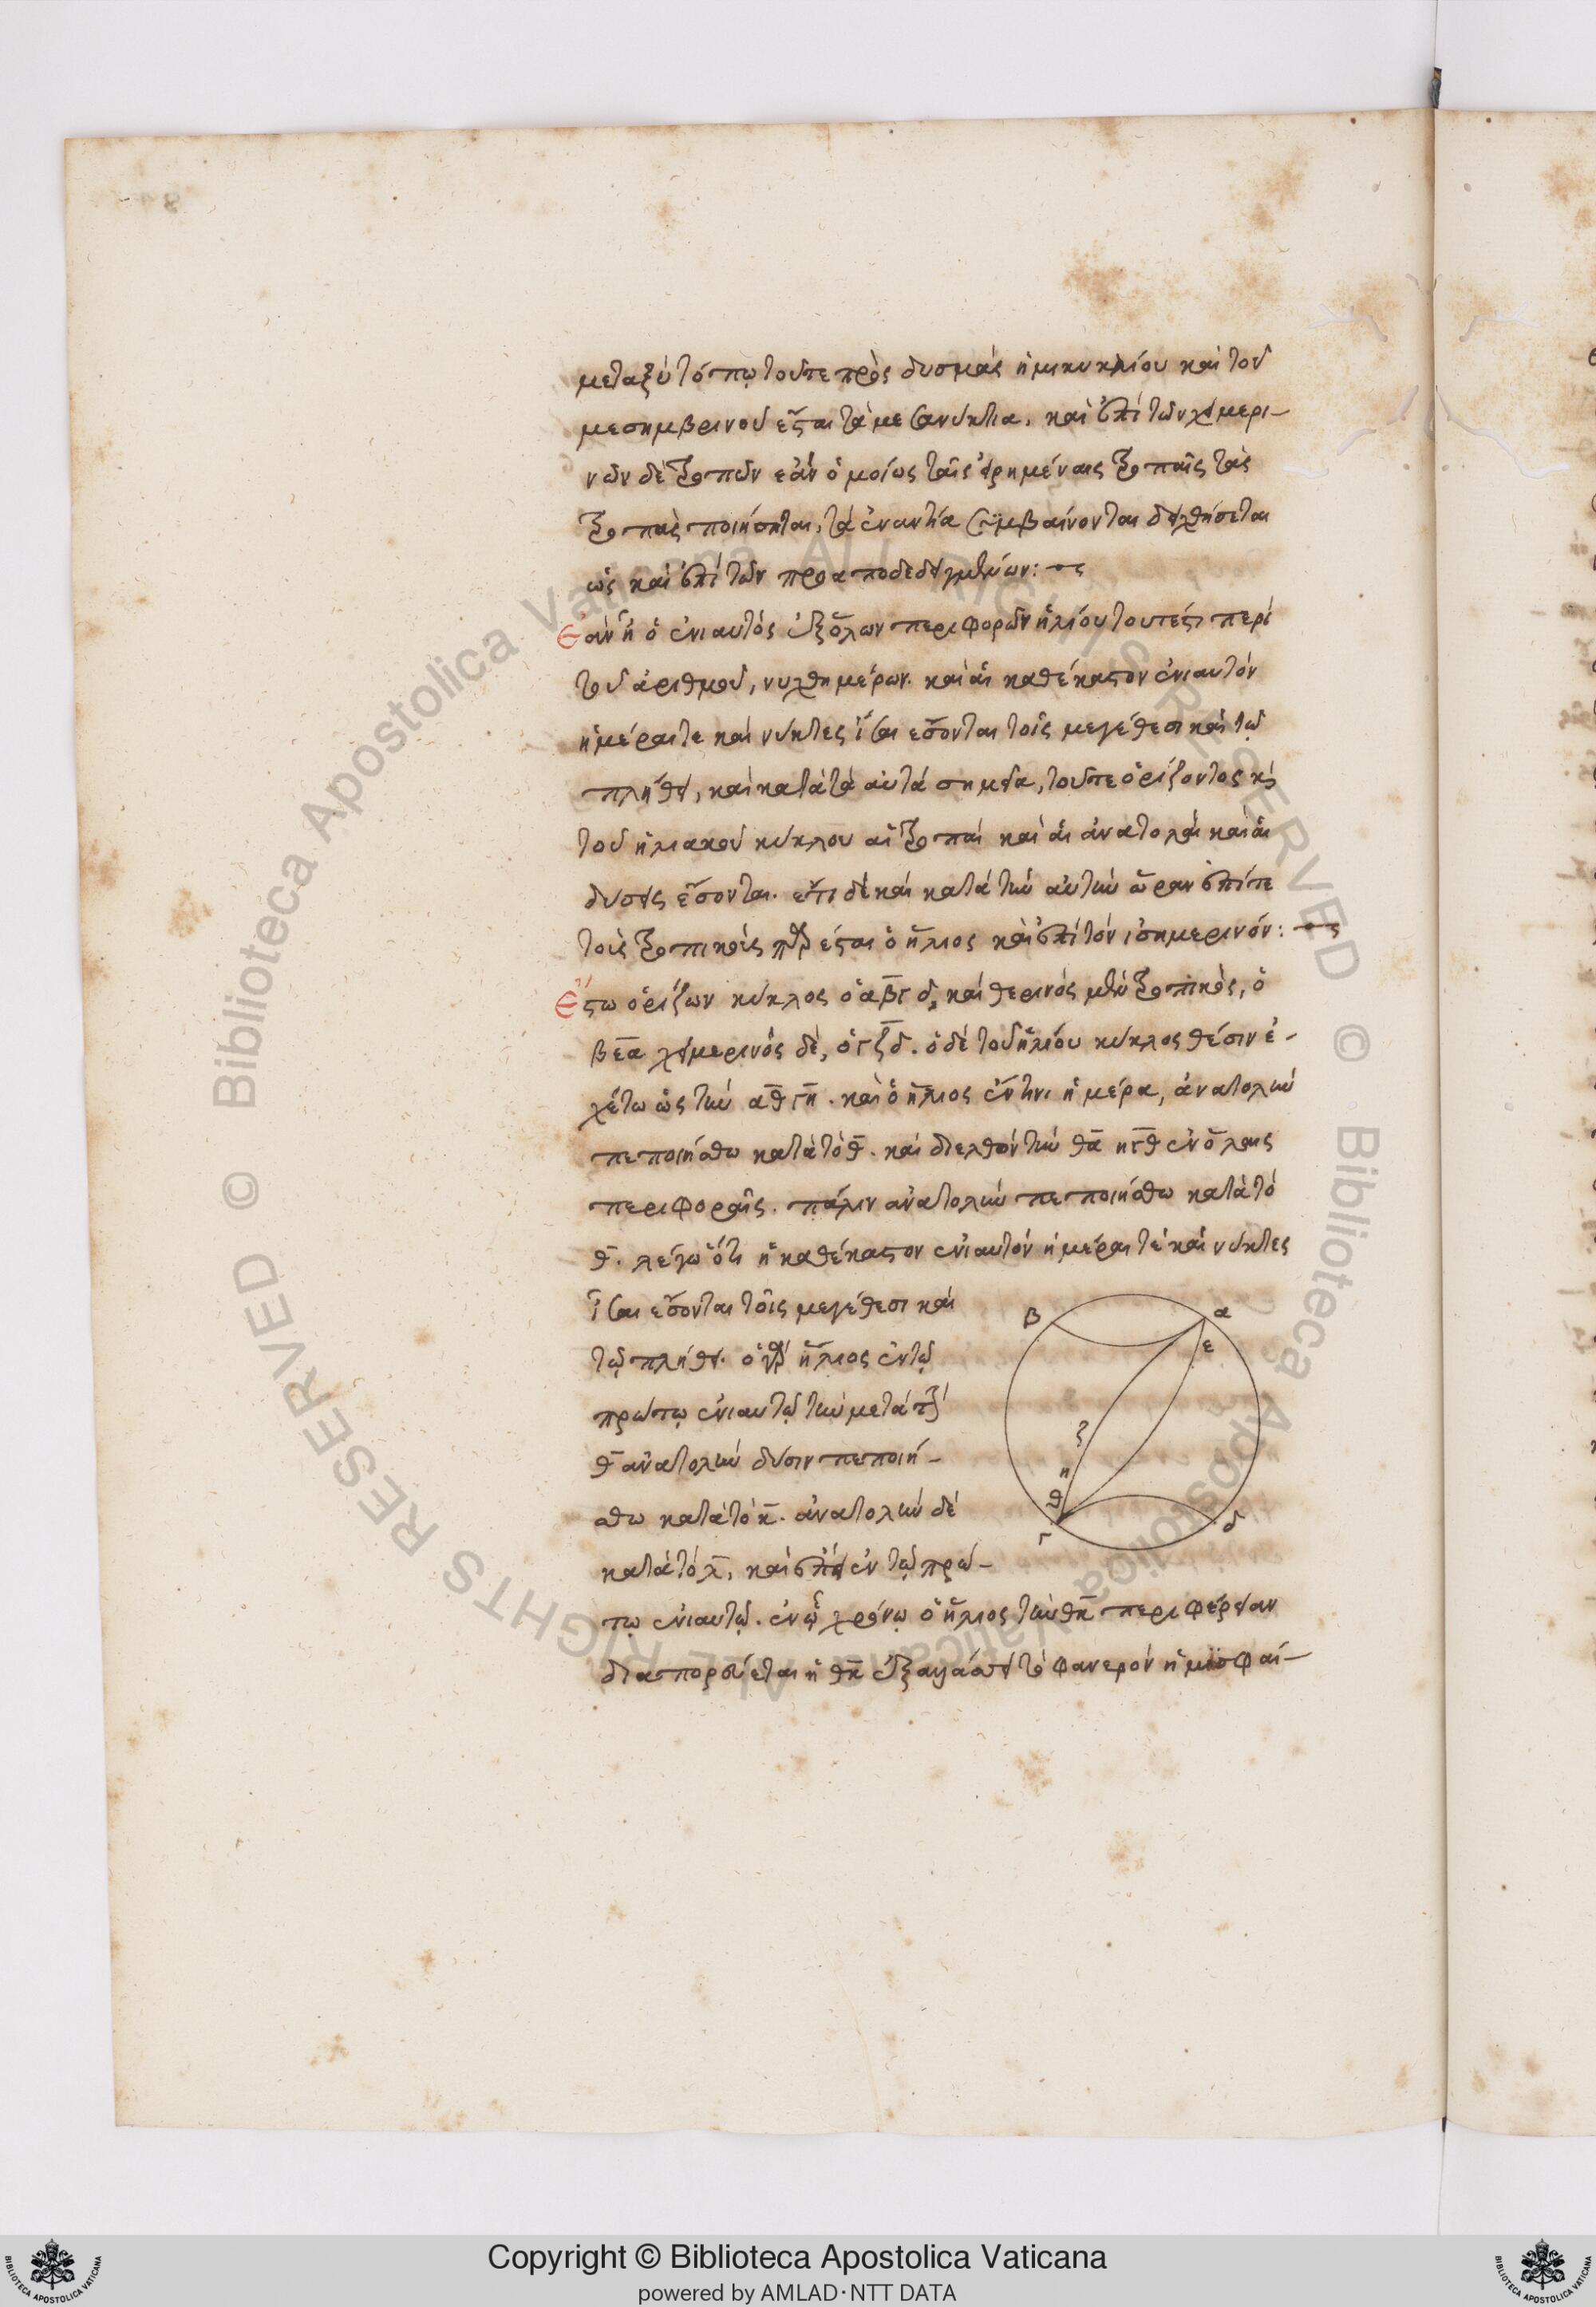 μεταξὺ τόπω τοῦτε πρὸς δυσμὰς ἡμικυκλίου καὶ τοῦ
μεσημβρινοῦ ἔσται τὰ μεσανύκτια. καὶ ἐπὶ τῶν χειμερι-
νῶν δὲ τροπῶν ἐὰν ὁμοίως ταῖς εἰρημέναις τροπαῖς τὰς
τροπὰς ποιήσηται, τὰ ἐναντία συμβαίνονται δειχθήσεται
ὡς καὶ ἐπὶ τῶν προαποδεδειγμένων:
Ἐὰν ᾖ ὁ ἐνιαυτὸς ἐξ ὅλων περιφορῶν ἡλίου τουτέστι περὶ
τοῦ ἀριθμοῦ, νυχθημέρων. καὶ αἱ καθέκαστον ἐνιαυτὸν
ἡμέραι τε καὶ νύκτες ἴσαι ἔσονται τοῖς μεγέθεσι καὶ τῷ
πλήθει, καὶ κατὰ τὰ αὐτὰ σημεῖα, τοῦτε ὁρίζοντος κ(αὶ)
τοῦ ἡλιακοῦ κύκλου αἱ τροπαὶ καὶ αἱ ἀνατολαὶ καὶ αἱ
δύσεις ἔσονται. ἔτι δὲ καὶ κατὰ τὴν αὐτὴν ὥραν ἐπί τε
τοῖς τροπικοῖς πάρεσται ὁ ἥλιος καὶ ἐπὶ τὸν ἰσημερινόν:
Ἔστω ὁρίζων κύκλος ὁ αβγδ, καὶ θερινὸς μὲν τροπικὸς, ὁ
βεα χειμερινὸς δὲ, ὁ γζδ. ὁ δὲ τοῦ ἡλίου κύκλος θέσιν ἐ-
χέτω ὡς τὴν αθγη. καὶ ὁ ἥλιος ἔν τινι ἡμέρα, ἀνατολὴν
πεποιήσθω κατὰ τὸ θ. καὶ διελθὼν τὴν θα ηγθ ἐν ὅλαις
περιφοραῖς. πάλιν ἀνατολὴν πεποιήσθω κατὰ τὸ
θ. λέγω ὅτι ἡ καθέκαστον ἐνιαυτὸν ἡμέραι τὲ καὶ νύκτες
ἴσαι ἔσονται τοῖς μεγέθεσι καὶ
τῷ πλήθει. ὁ γὰρ ἥλιος ἐν τῷ
πρώτῳ ἐνιαυτῷ τὴν μετὰ τὴν
θ ἀνατολὴν δύσιν πεποιή-
σθω κατὰ τὸ κ. ἀνατολὴν δὲ
κατὰ τὸ λ, καὶ ἐπεὶ ἐν τῷ πρώ-
τῳ ἐνιαυτῷ. ἐν ᾧ χρόνῳ ὁ ἥλιος τὴν θκ περιφέρειαν
διαπορεύεται ἡ θκ ἐξαλλάσσει τὸ φανερὸν ἡμισφαί-
β
α
ε
ζ
η
θ
γ
δ
Copyright © Biblioteca Apostolica Vaticana
powered by AMLAD·NTT DATA
© Biblioteca Apostolica Vaticana ALL RIGHTS RESERVED © Biblioteca Apostolica Vaticana ALL RIGHTS RESERVED